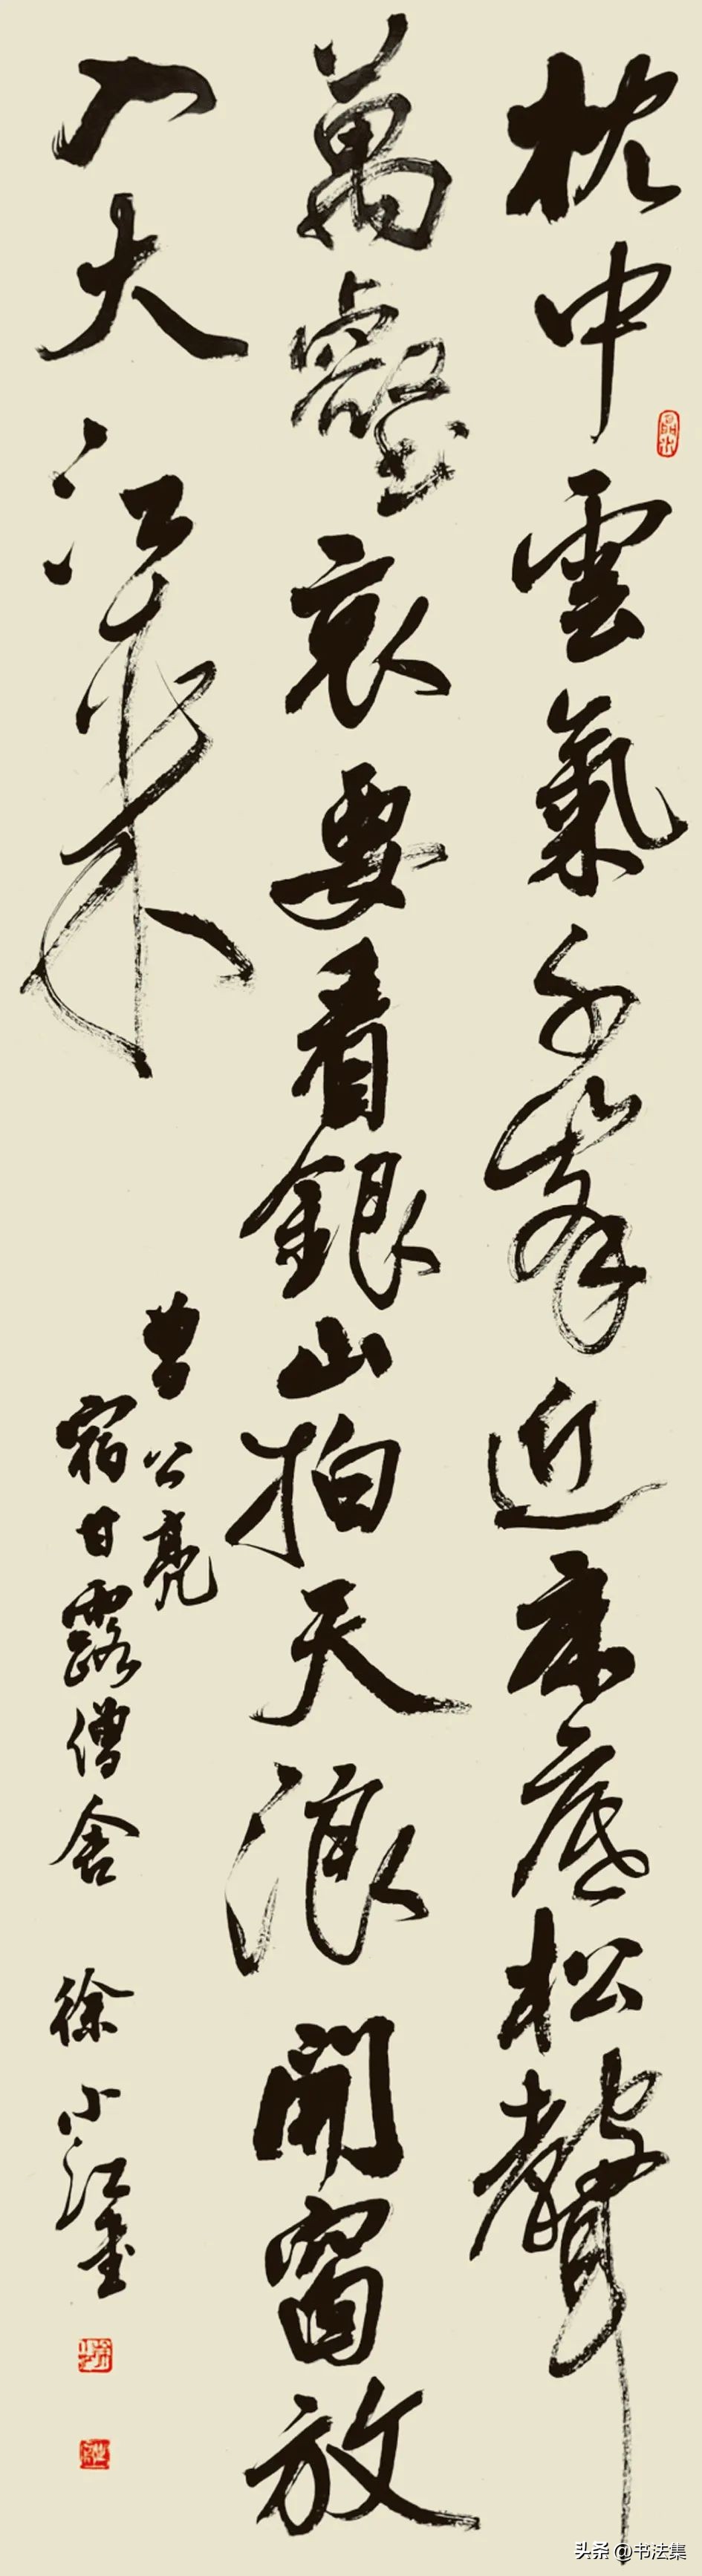 枕中雲氣千峯近床底松聲
萬壑哀要看銀山拍天浪開窗放
入大江來
曾公亮
宿甘露僧舍 徐小江書
头条 @书法集